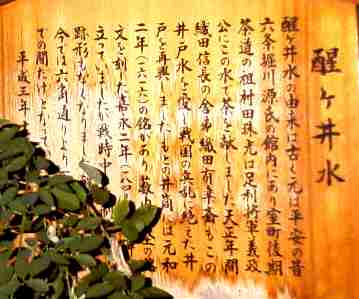 醒ヶ井水
醒ヶ井水の由来は古く元は平安の昔
六条堀川源氏の館内にあり室町後期
茶道の祖村田珠光は足利将軍義政
公にこの水で茶を献じました天正年間
織田信長の舎弟織田有楽斎もこの
井戸水を愛し戦国の兵乱に絶てた井
戸を再興しましたもとの井筒には元和
二年(一六一六)の銘があり藪内
文を刻した嘉永二年(一八
立っていましたが戦時中
跡形もなくなりまし
今では六角通りより
での間だけとなって
平成三年